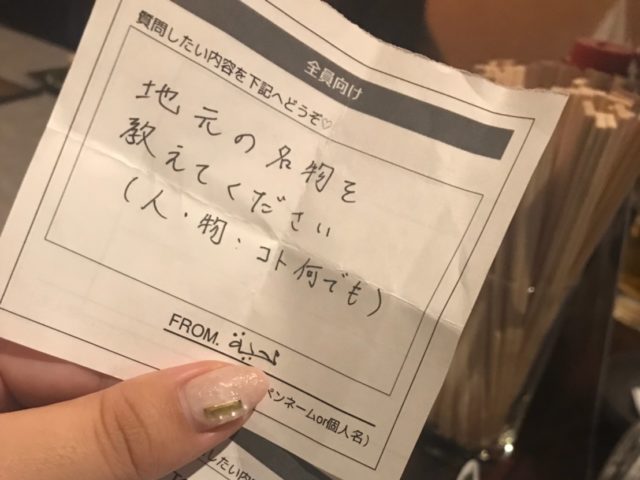 全員向け
質問したい内容を下記へどうぞ♡
地元の名物を
教えてください
(人・物・コト何でも)
FROM.
ペンネームor個人名)
したい内容